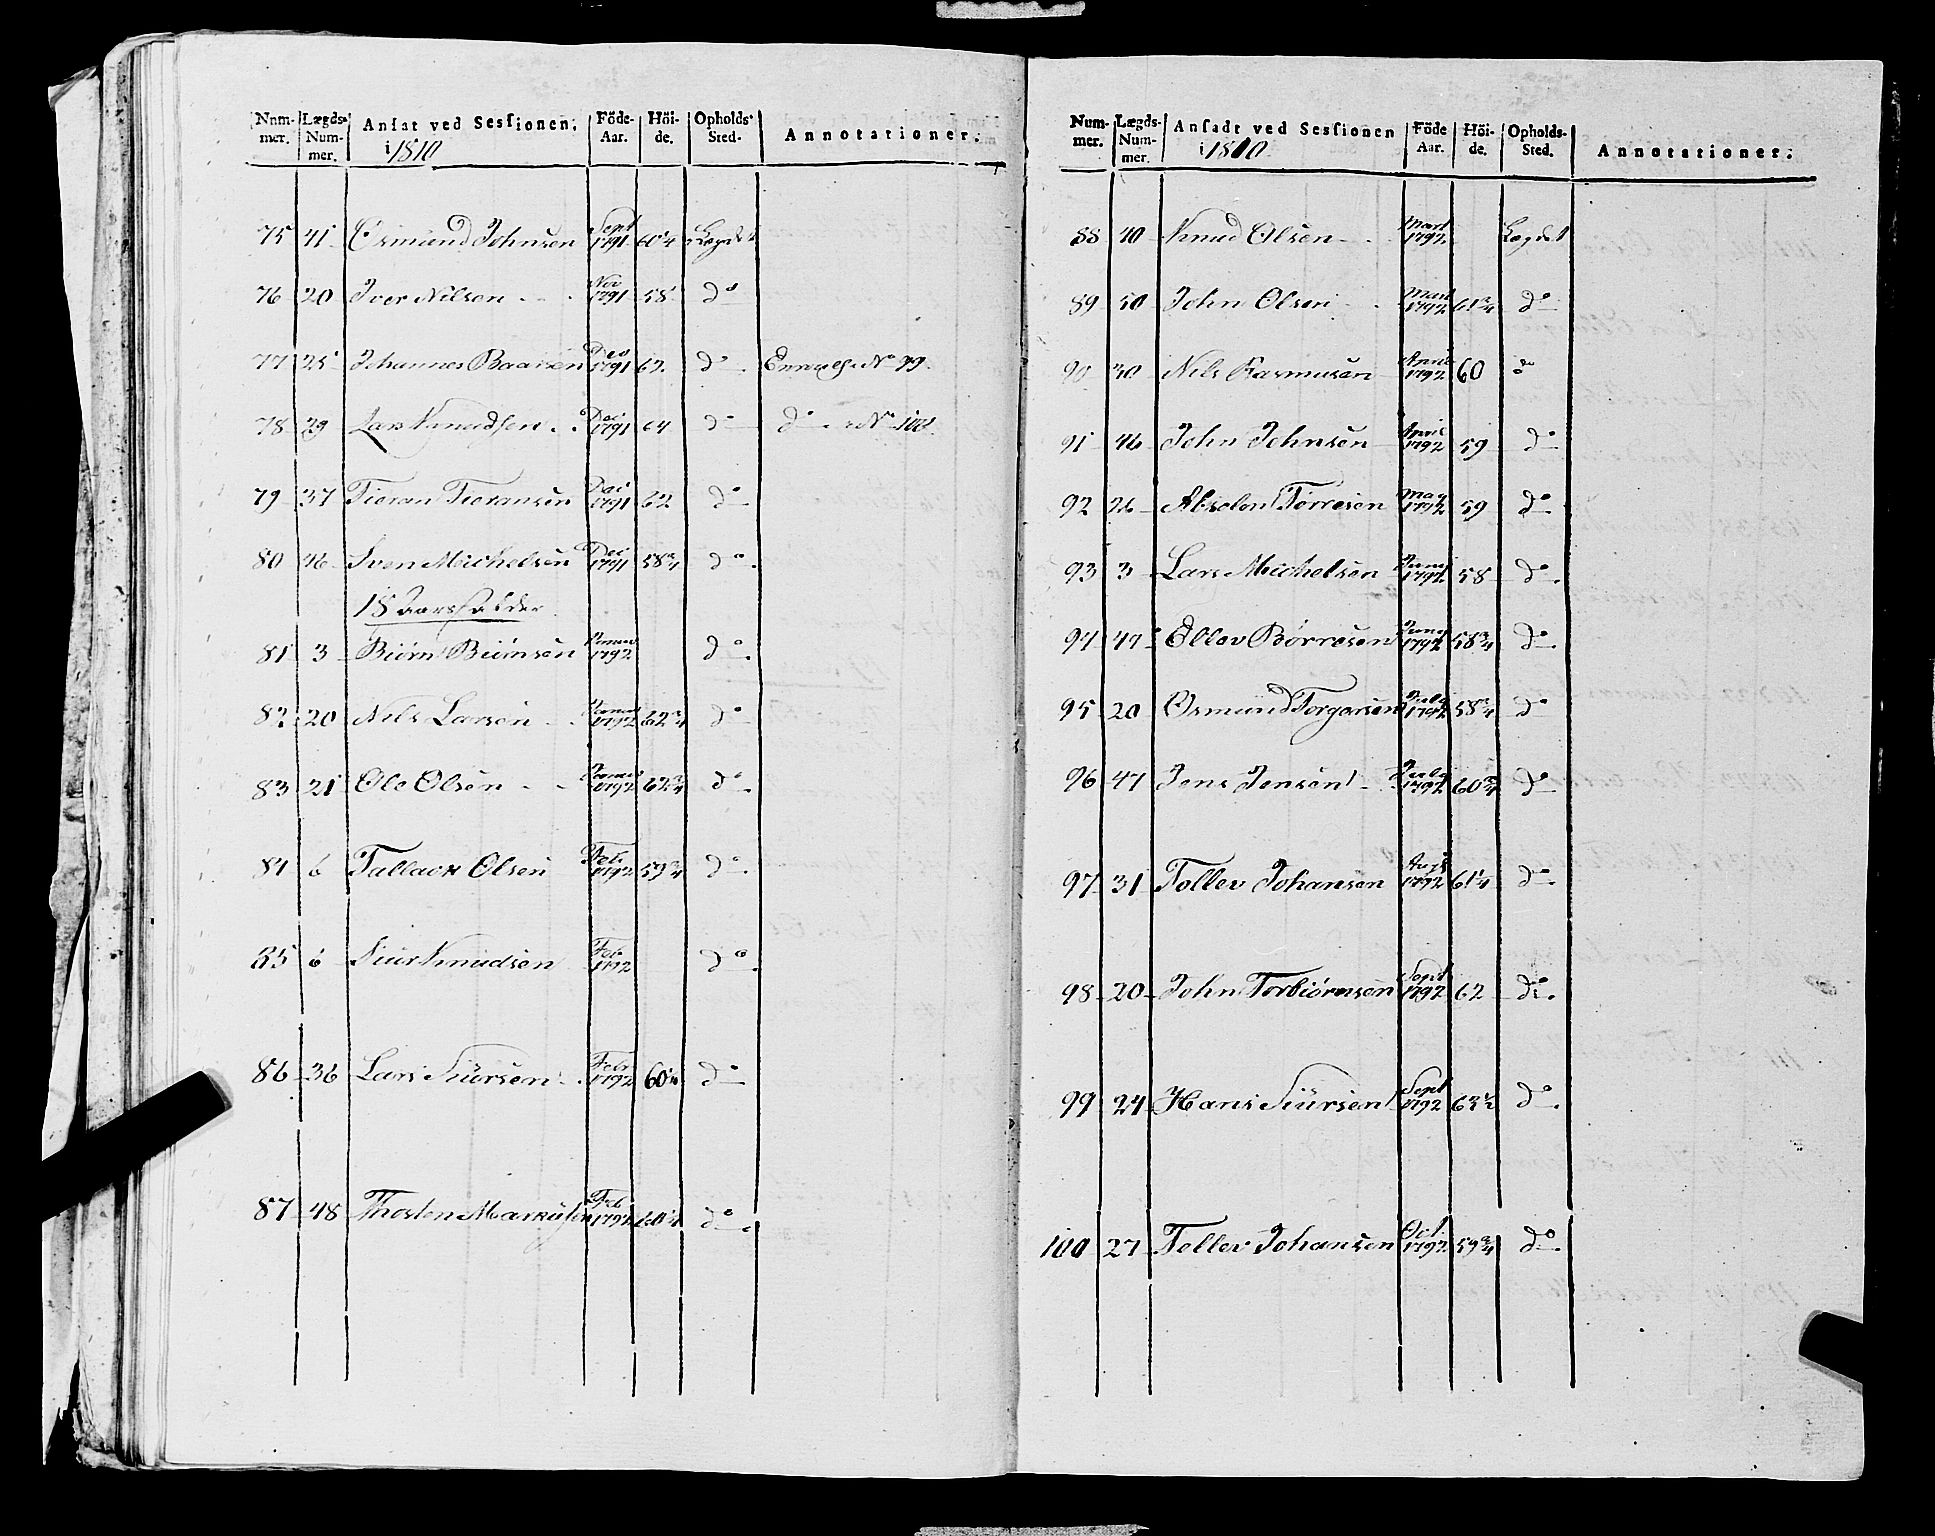 Num-mer. Lægds-Num-mer. Ansat ved Sessionen i 1810 Föde-Aar. Höi-de. Opholds-Sted. Annotationer.
75 41 Osmund Johnsen Sept 1791 60 1/4 Lægdet
76 20 Iver Nilsen Nov 1791 58 do
77 25 Johannes Baarsen Dec 1791 62 do No 99.
78 29 Lars Knudsen Dec 1791 64 do do No 100
79 37 Tieran Tieransen Dec 1791 62 do
80 46 Sven Michelsen Dec 1791 58 3/4 do
18 Aars Alder
81 3 Biörn Biörnsen Januar 1792 do
82 20 Nils Larsen Januar 1792 62 3/4 do
83 21 Ole Olsen Januar 1792 62 3/4 do
84 6 Tallack Olsen Feb 1792 59 3/4 do
85 6 Siur Knudsen Feb 1792 do
86 36 Lars Siursen Febr 1792 60 do
87 48 Thosten Markusen Feb 1792 60 1/4 do
Num-mer. Lægds-Num-mer. Ansadt ved Sessionen i 1810 Föde Aar. Höi-de. Opholds-Sted. Annotationer.
88 40 Knud Olsen Mart 1792 Lægdet
89 50 John Olsen Mart 1792 61 3/4 do
90 30 Nils Rasmusen April 1792 60 do
91 46 John Johnsen April 1792 59 do
92 26 Absolon Törresen May 1792 59 do
93 3 Lars Michelsen Juni 1792 58 do
94 47 Ellev Börresen Juny 1792 58 3/4 do
95 20 Osmund Torgersen July 1792 58 3/4 do
96 47 Jens Jensen July 1792 60 3/4 do
97 31 Tollev Johansen Augt 1792 61 1/4 do
98 20 John Torbiörnsen Sept 1792 62 do
99 24 Hans Siursen Sept 1792 63 1/2 do
100 27 Tellev Johansen Oct 1792 59 3/4 do